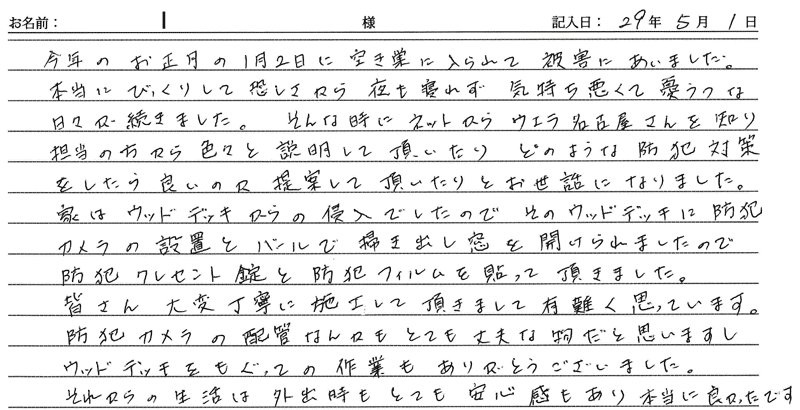 お名前： 様 記入日： 29年 5月 1日
今年の お正月の 1月2日に 空き巣に 入られて 被害に あいました。
本当に びっくりして 恐しさから 夜も 寝れず 気持ち悪くて 憂うつな
日々が 続きました。 そんな時に ネットから ウエラ名古屋さんを 知り
担当の方から 色々と 説明して 頂いたり どのような 防犯 対策
をしたら 良いのか 提案して 頂いたりと お世話に なりました。
家は ウッドデッキからの 侵入でしたので そのウッドデッキに 防犯
カメラの 設置と バールで 掃き出し窓を 開けられましたので
防犯 クレセント錠と 防犯フィルムを 貼って 頂きました。
皆さん 大変丁寧に 施工して 頂きまして 有難く 思っています。
防犯カメラの 配管なんかも とても 丈夫な物だと 思いますし
ウッドデッキを もぐっての 作業も ありがとうございました。
それからの 生活は 外出時も とても 安心感もあり 本当に 良かったです